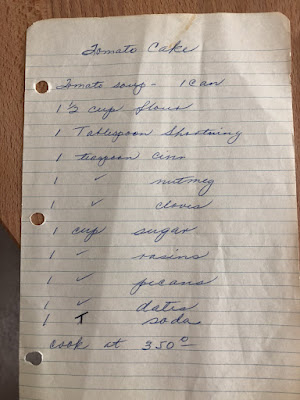 Tomato Cake
Tomato soup - 1 Can
1 1/2 cup flour
1 Tablespoon Shortning
1 teaspoon cinn
1 " nutmeg
1 " cloves
1 cup sugar
1 " rasins
1 " pecans
1 " dates
1 T soda
cook at 350°